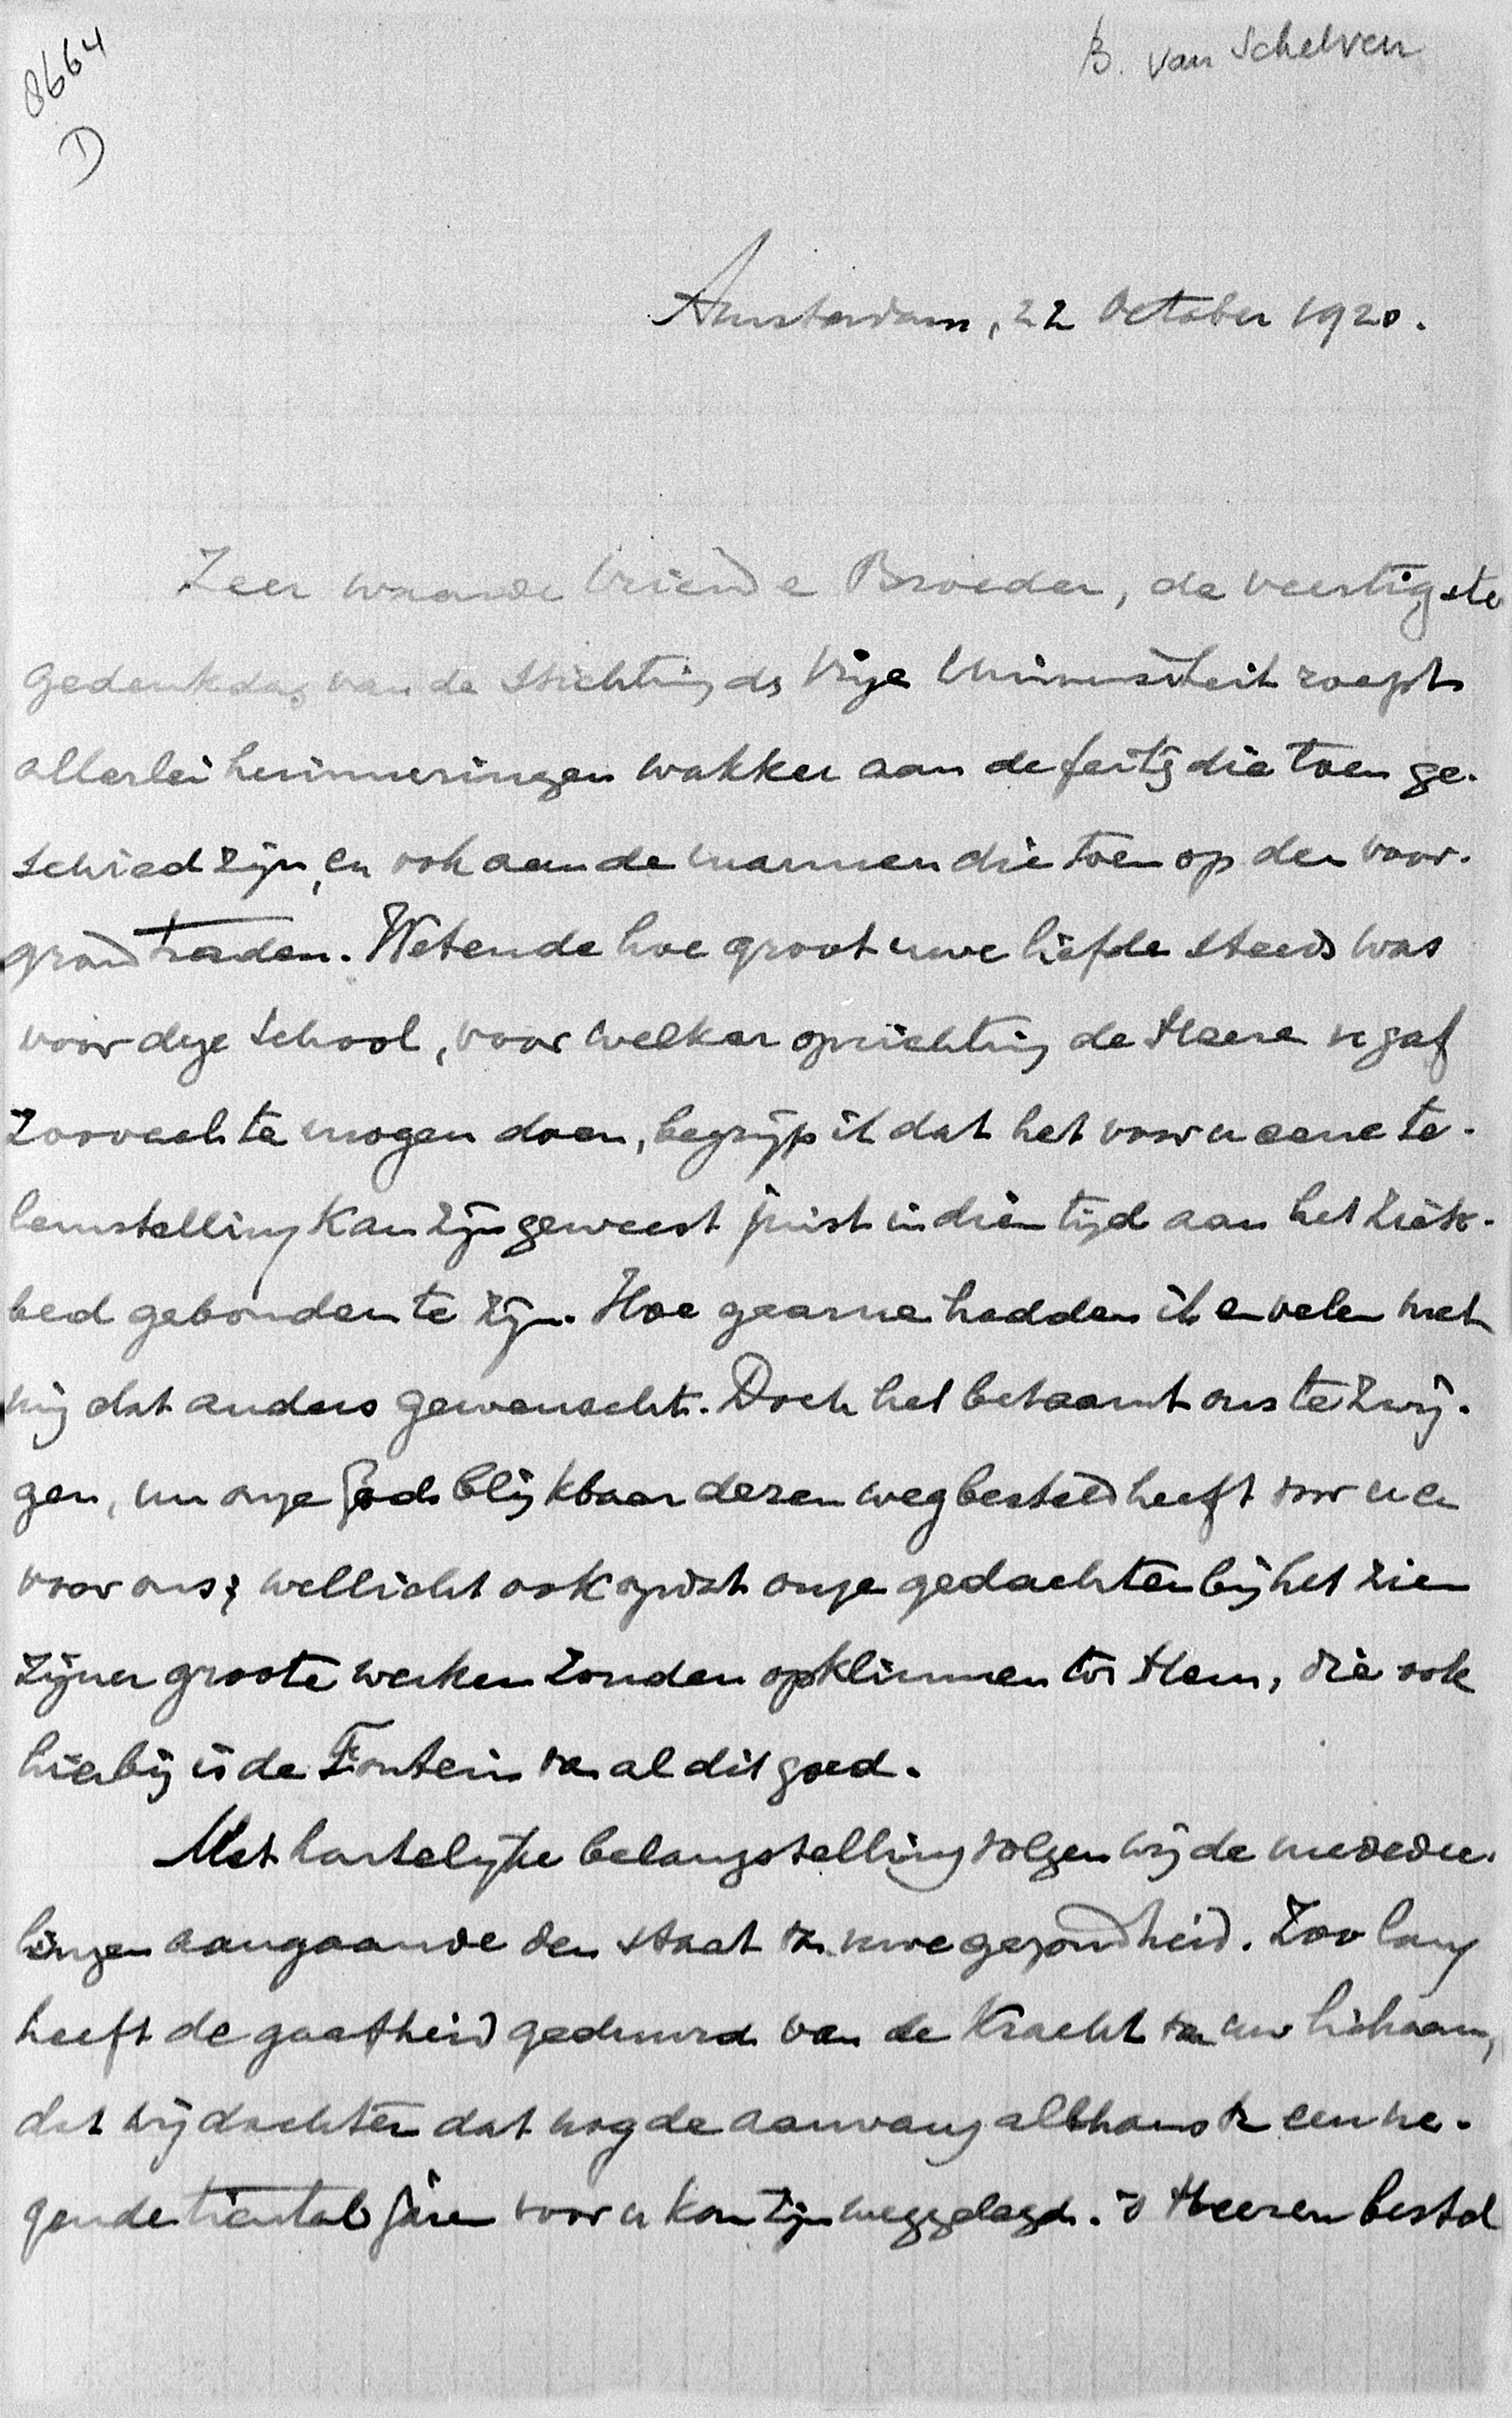 8664
D
B. van Schelven
Amsterdam, 22 October 1920.
Zeer waarde Vriend e Broeder, de veertigste
gedenkdag van de Stichting der Vrije Universiteit roept
allerlei herinneringen wakker aan de feiten die toen ge-
schied zijn, en ook aan de mannen die toen op den voor-
grond traden. Wetende hoe groot uwe liefde steeds was
voor deze School, voor welker oprichting de Heere u gaf
zooveel te mogen doen, begrijp ik dat het voor u eene te-
leurstelling kan zijn geweest juist in dien tijd aan het ziek-
bed gebonden te zijn. Hoe gaarne hadden ik en velen met
mij dat anders gewenscht. Doch het betaamt ons te zwij-
gen, nu onze God blijkbaar dezen weg besteld heeft voor u en
voor ons; wellicht ook opdat onze gedachten bij het zien
Zijner groote werken zouden opklimmen tot Hem, die ook
hierbij is de Fontein van al dit goed.
Met hartelijke belangstelling volgen wij de mededee-
lingen aangaande den staat van uwe gezondheid. Zoo lang
heeft de gaafheid geduurd van de kracht van uw lichaam,
dat wij dachten dat nog de aanvang althans van een ne-
gende tiental jaren voor u kon zijn weggelegd. 's Heeren bestel